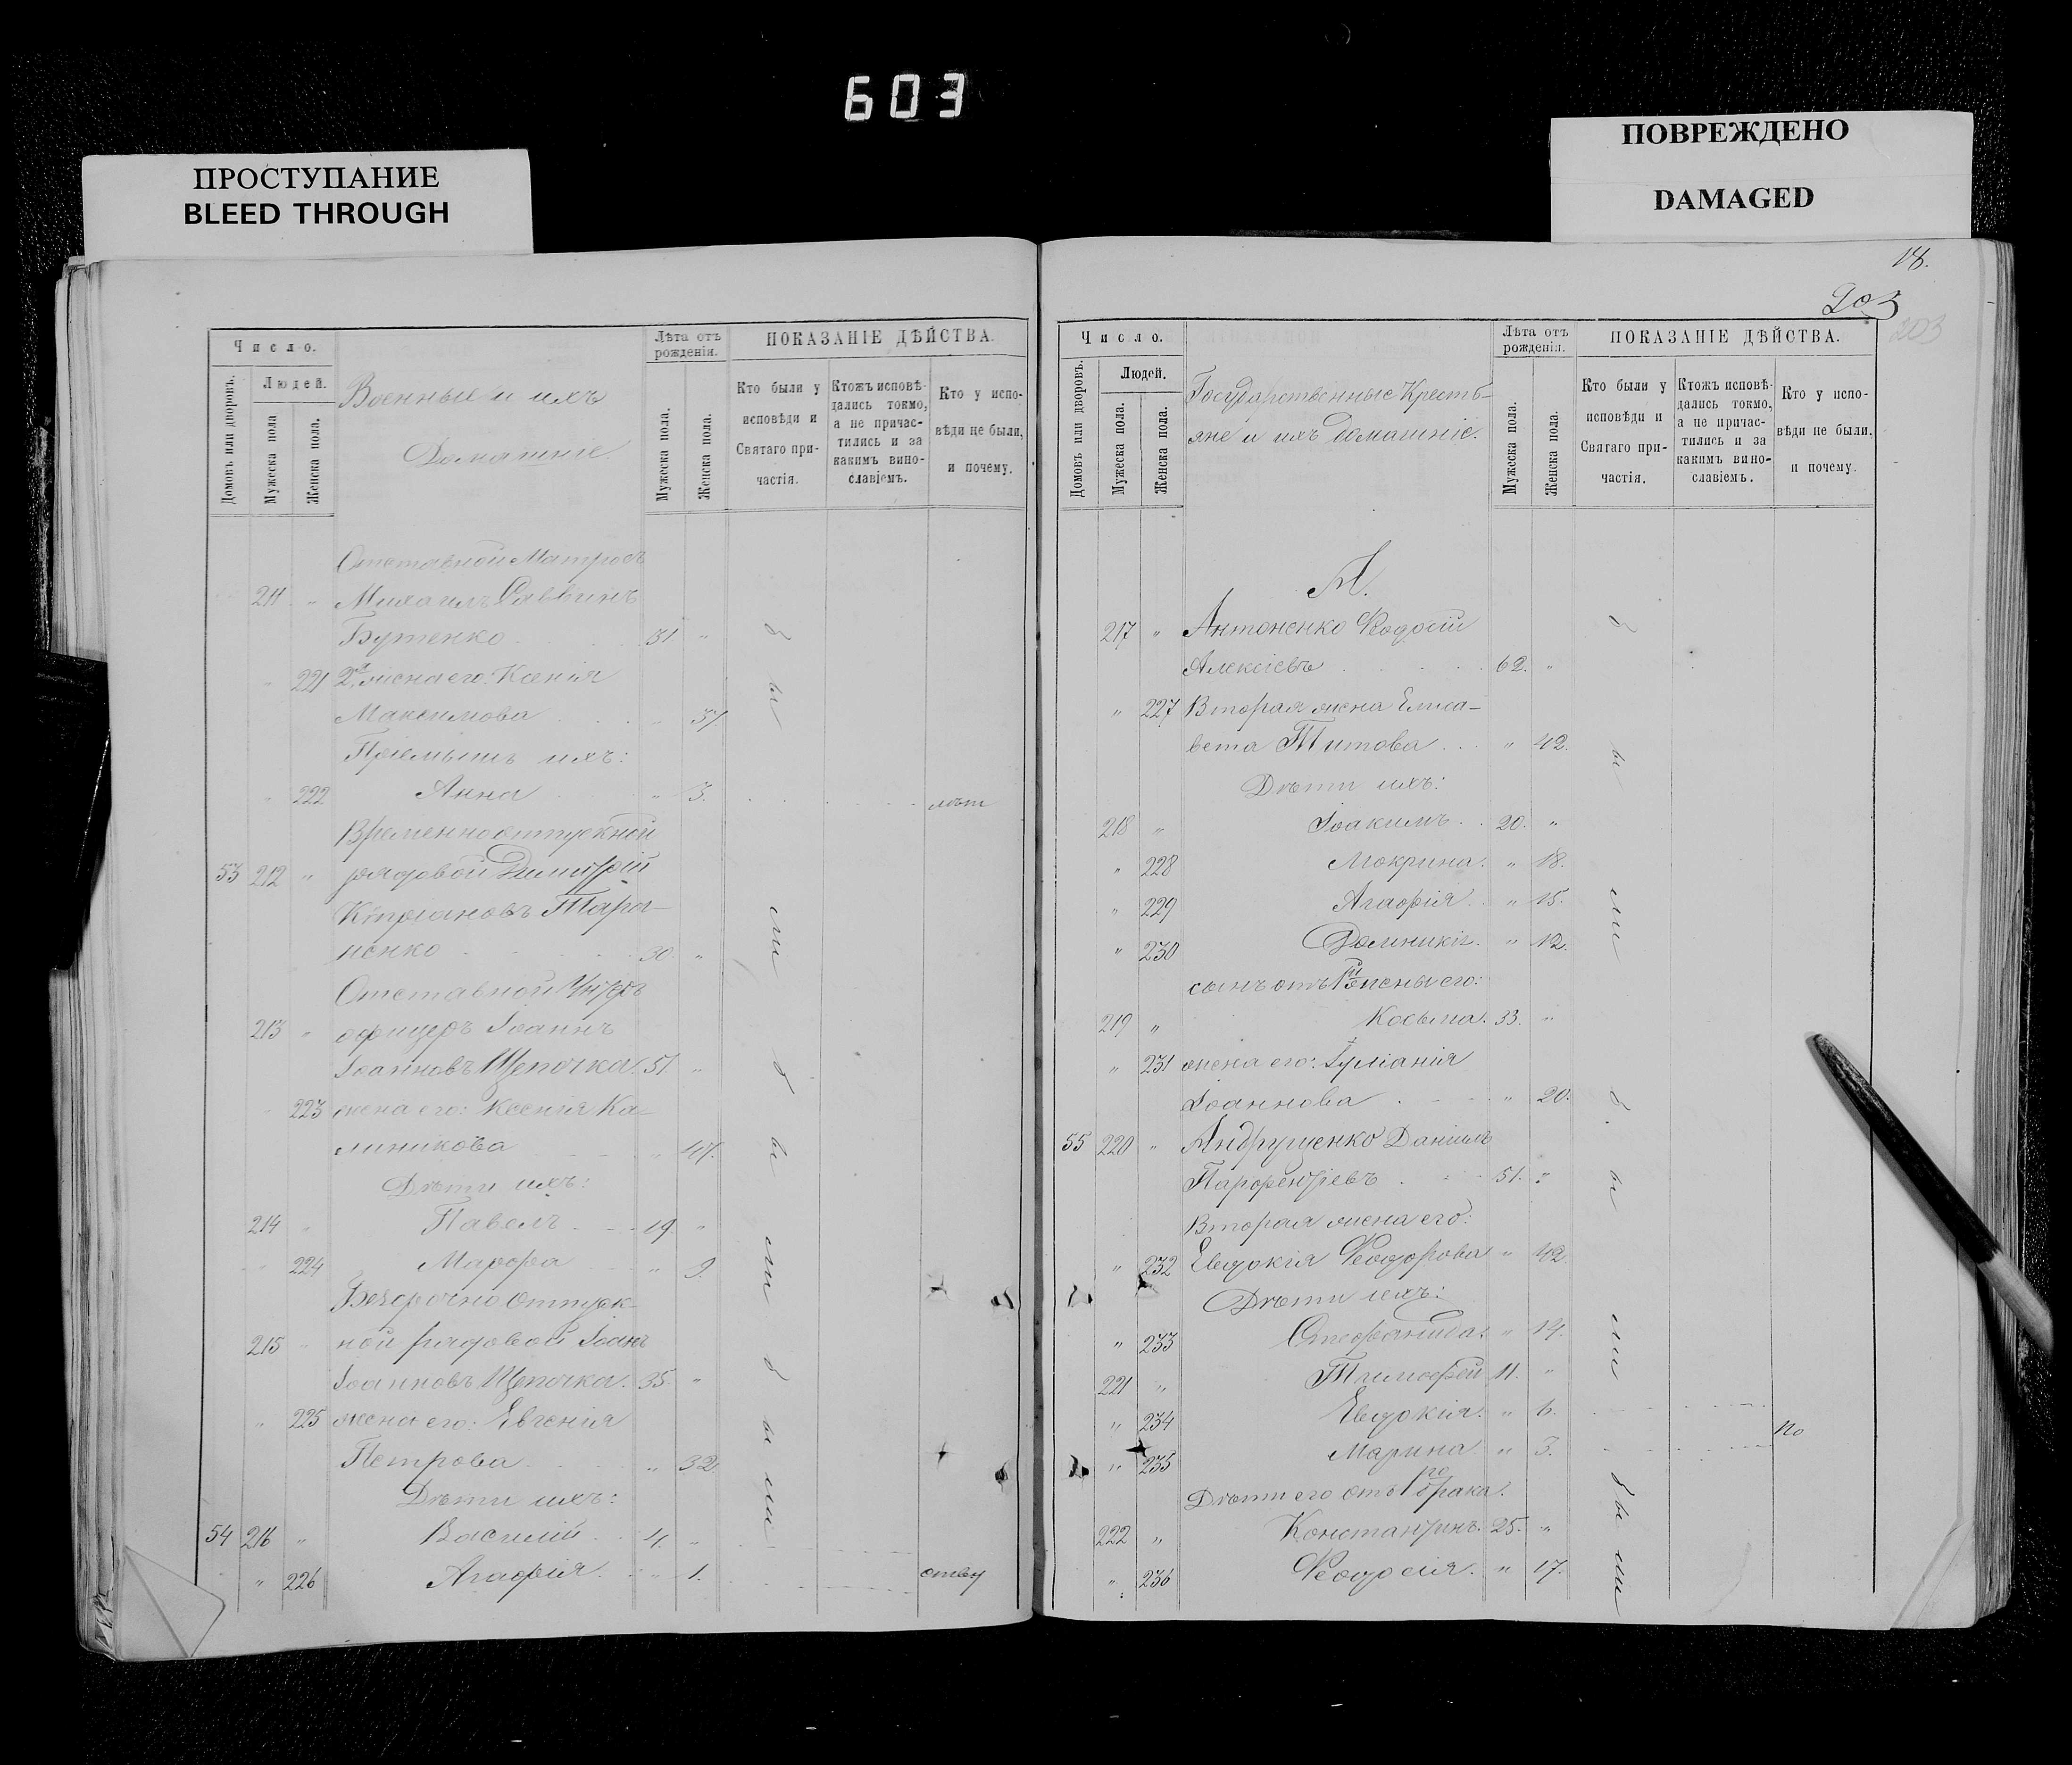 603
ПРОСТУПАНИЕ
BLEED THROUGH
ПОВРЕЖДЕНО
DAMAGED
Число.
Людей.
Домовъ или дворовъ.
Мужеска пола
Женска пола.
Военные и ихъ
Домашніе
Лѣта отъ
рожденія.
Мужеска пола.
Женска пола.
ПОКАЗАНІЕ ДѢЙСТВА.
Кто были у
исповѣди и
Святаго при-
частія.
Ктожъ исповѣ-
дались токмо,
а не причас-
тились и за
какимъ вино-
славіемъ.
Кто у испо-
вѣди не были,
и почему.
Отставной Матросъ
211 " Михаилъ Саввинъ
Бутенко 51. "
" 221 2я жена его: Ксенія
Максимова " 37.
Пріемышъ ихъ:
" 222 Анна " 3. лѣт
Временноотпускной
53 212 " рядовой Димитрій
Кипріановъ Тара-
ненко 30. "
Отставной Унтеръ
213 " офицеръ Іоаннъ
Іоанновъ Щепочка. 51. "
223 жена его: Ксенія Ка-
линикова " 47.
Дѣти ихъ:
214 " Павелъ 19. "
224 Марфа " 9.
Безсрочно отпуск-
215 " ной рядовой Іоанъ
Іоанновъ Щепочка. 35. "
" 225 жена его: Евгенія
Петрова " 32.
Дѣти ихъ:
54 216 " Василій 4. "
" 226 Агафія. " 1. ству
были были были
18.
203
203
Число.
Людей.
Домовъ или дворовъ.
Мужеска пола.
Женска пола.
Государственные Кресть-
яне и ихъ домашніе.
Лѣта отъ
рожденія.
Мужеска пола.
Женска пола.
ПОКАЗАНІЕ ДѢЙСТВА.
Кто были у
исповѣди и
Святаго при-
частія.
Ктожъ исповѣ-
дались токмо,
а не причас-
тились и за
какимъ вино-
славіемъ.
Кто у испо-
вѣди не были.
и почему.
А.
217 " Антоненко Феодосій
Алексіевъ 62. "
" 227 Вторая жена Елиса-
вета Титова " 42.
Дѣти ихъ:
218 " Іоакимъ 20. "
" 228 Мокрина. " 18.
" 229 Агафія. " 15.
" 230 Домникія. " 12.
сынъ отъ 1й жены его:
219 " Косьма. 33. "
" 231 жена его: Іуліанія
Іоаннова " 20.
55 220 " Андрущенко Даніилъ
Парфентіевъ 51. "
Вторая жена его:
" 232 Евдокія Феодорова " 42
Дѣти ихъ:
" 233 Стефанида: " 14.
221 " Тимофей 11. "
" 234 Евдокія. " 6.
по
" 235 Марина. " 3.
Дѣти его отъ 1го брака.
222 " Константинъ. 25. "
" 236 Феодосія. " 17.
были были были